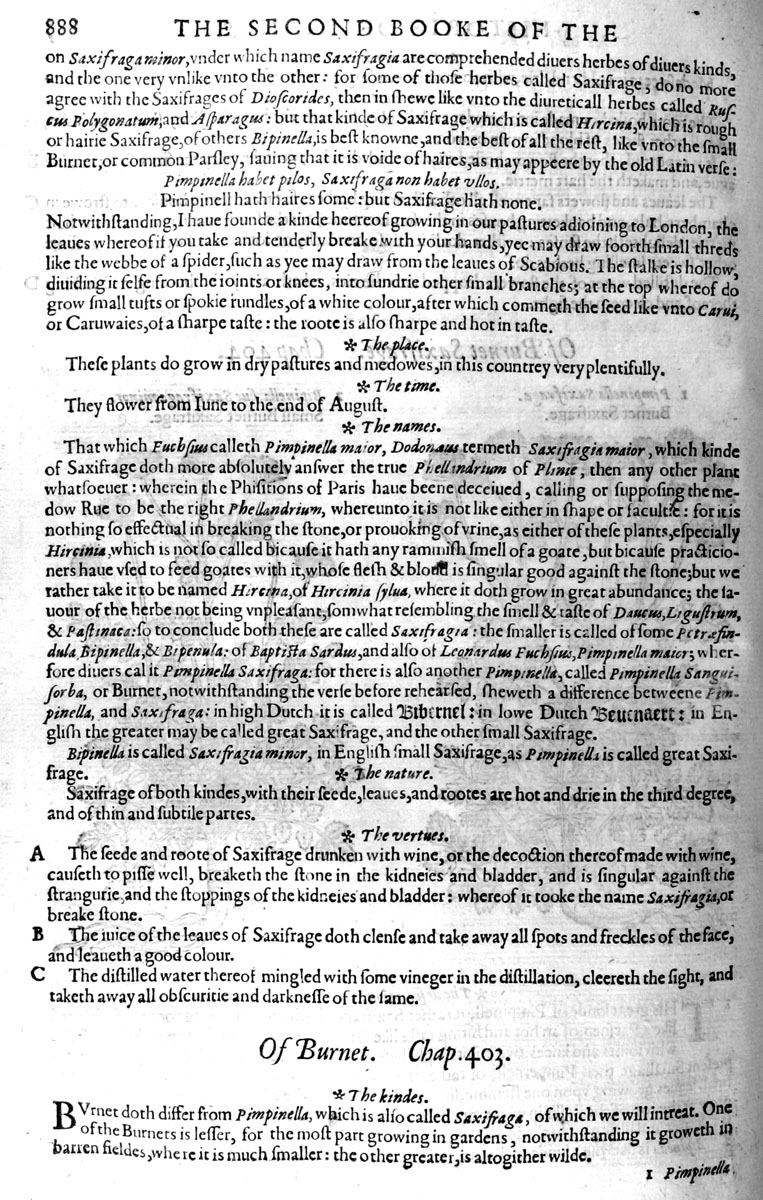 888 THE SECOND BOOKE OF THE
on Saxifraga minor, vnder which name Saxifragia are comprehended diuers herbes of diuers kinds,
and the one very vnlike vnto the other: for some of those herbes called Saxifrage, do no more
agree with the Saxifrages of Dioscorides, then in shewe like vnto the diureticall herbes called Rus-
cus Polygonatum, and Asparagus: but that kinde of Saxifrage which is called Hircina, which is rough
or hairie Saxifrage, of others Bipinella, is best knowne, and the best of all the rest, like vnto the small
Burnet, or common Parsley, sauing that it is voide of haires, as may appeere by the old Latin verse:
Pimpinella habet pilos, Saxifraga non habet vllos.
Pimpinell hath haires some: but Saxifrage hath none.
Notwithstanding, I haue founde a kinde heereof growing in our pastures adioining to London, the
leaues whereof if you take and tenderly breake with your hands, yee may draw foorth small threds
like the webbe of a spider, such as yee may draw from the leaues of Scabious. The stalke is hollow,
diuiding it selfe from the ioints or knees, into sundrie other small branches; at the top whereof do
grow small tufts or spokie rundles, of a white colour, after which commeth the seed like vnto Carui,
or Caruwaies, of a sharpe taste: the roote is also sharpe and hot in taste.
* The place.
These plants do grow in dry pastures and medowes, in this countrey very plentifully.
* The time.
They flower from Iune to the end of August.
* The names.
That which Fuchsius calleth Pimpinella maior, Dodonæus termeth Saxifragia maior, which kinde
of Saxifrage doth more absolutely answer the true Phellandrium of Plinie, then any other plant
whatsoeuer: wherein the Phisitions of Paris haue beene deceiued, calling or supposing the me-
dow Rue to be the right Phellandrium, whereunto it is not like either in shape or facultie: for it is
nothing so effectual in breaking the stone, or prouoking of vrine, as either of these plants, especially
Hircinia, which is not so called bicause it hath any rammish smell of a goate, but bicause practicio-
ners haue vsed to feed goates with it, whose flesh & bloud is singular good against the stone; but we
rather take it to be named Hircina, of Hircinia sylua, where it doth grow in great abundance; the sa-
uour of the herbe not being vnpleasant, somwhat resembling the smell & taste of Daucus, Ligustrum,
& Pastinaca: so to conclude both these are called Saxifragia: the smaller is called of some Petræfin-
dula, Bipinella, & Bipenula: of Baptista Sardus, and also of Leonardus Fuchsius, Pimpinella maior; wher-
fore diuers cal it Pimpinella Saxifraga: for there is also another Pimpinella, called Pimpinella Sangui-
sorba, or Burnet, notwithstanding the verse before rehearsed, sheweth a difference betweene Pim-
pinella, and Saxifraga: in high Dutch it is called Bibernel: in lowe Dutch Beuenaert: in En-
glish the greater may be called great Saxifrage, and the other small Saxifrage.
Bipinella is called Saxifragia minor, in English small Saxifrage, as Pimpinella is called great Saxi-
frage. * The nature.
Saxifrage of both kindes, with their seede, leaues, and rootes are hot and drie in the third degree,
and of thin and subtile partes.
* The vertues.
A The seede and roote of Saxifrage drunken with wine, or the decoction thereof made with wine,
causeth to pisse well, breaketh the stone in the kidneies and bladder, and is singular against the
strangurie, and the stoppings of the kidneies and bladder: whereof it tooke the name Saxifragia, or
breake stone.
B The iuice of the leaues of Saxifrage doth clense and take away all spots and freckles of the face,
and leaueth a good colour.
C The distilled water thereof mingled with some vineger in the distillation, cleereth the sight, and
taketh away all obscuritie and darknesse of the same.
Of Burnet. Chap. 403.
* The kindes.
BVrnet doth differ from Pimpinella, which is also called Saxifraga, of which we will intreat. One
of the Burnets is lesser, for the most part growing in gardens, notwithstanding it groweth in
barren fieldes, where it is much smaller: the other greater, is altogither wilde.
1 Pimpinella